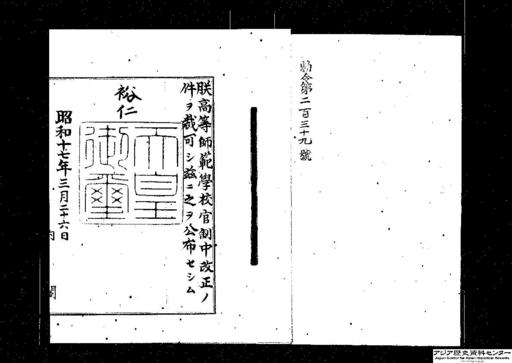 勅令第二百三十九號
朕高等師範學校官制中改正ノ
件ヲ裁可シ茲ニ之ヲ公布セシム
裕仁
天皇
御璽
昭和十七年三月二十六日
内閣
アジア歴史資料センター
Japan Center for Asian Historical Records